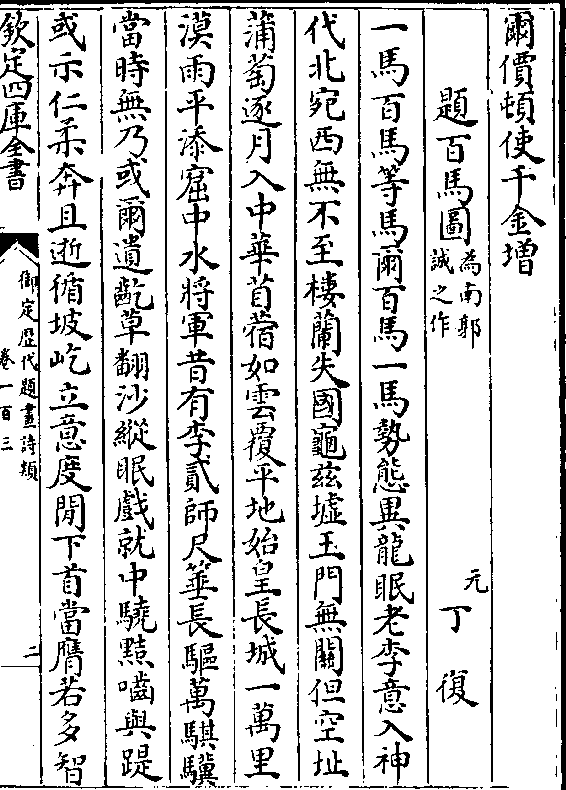 爾價頓使千金増
題百馬圖
為南郭
誠之作
元
丁復
一馬百馬等馬爾百馬一馬勢態異龍眠老李意入神
代北宛西無不至樓蘭失國龜兹墟玉門無關但空址
蒲萄逐月入中華苜蓿如雲覆平地始皇長城一萬里
漠雨平添窟中水將軍昔有李貳師尺箠長驅萬騏驥
當時無乃或爾遺齕草翻沙縱眠戯就中驍㸃嚙與踶
或示仁柔奔且逝循坡屹立意度閒下首當膺若多智
欽定四庫全書
御定歴代題畫詩類
卷一百三
二